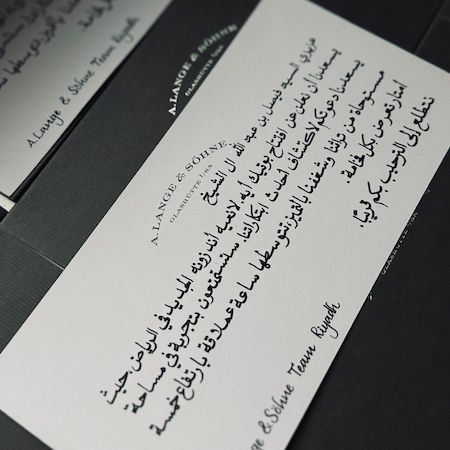 A. LANGE & SÖHNE
GLASHÜTTE I/SA
عزيزي السيد فيصل بن عبد الله آل الشيخ
يسعدنا أن نعلن عن افتتاح بوتيك أيه. لانغيه أند زونه الجديد في الرياض حيث
يسعدنا دعوتكم لاكتشاف أحدث ابتكاراتنا. ستستمتعون بتجربة في مساحة
مستوحاة من تراثنا وشغفنا بالتميز، تتوسطها ساعة عملاقة بارتفاع خمسة
أمتار تعرض بكل فخامة.
نتطلع إلى الترحيب بكم قريبًا.
nge & Söhne Team Riyadh
A. Lange & Söhne Team Riyadh
A. LANGE & SÖHNE
GLASHÜTTE I/SA
GLASHÜTTE I/SA